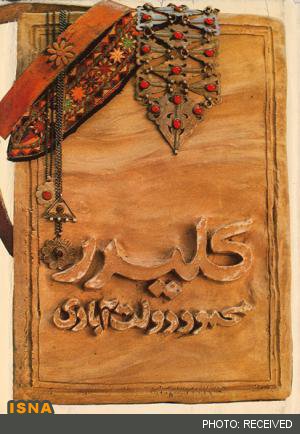 کلیدر
محمود دولت‌آبادی
ISNA
PHOTO: RECEIVED